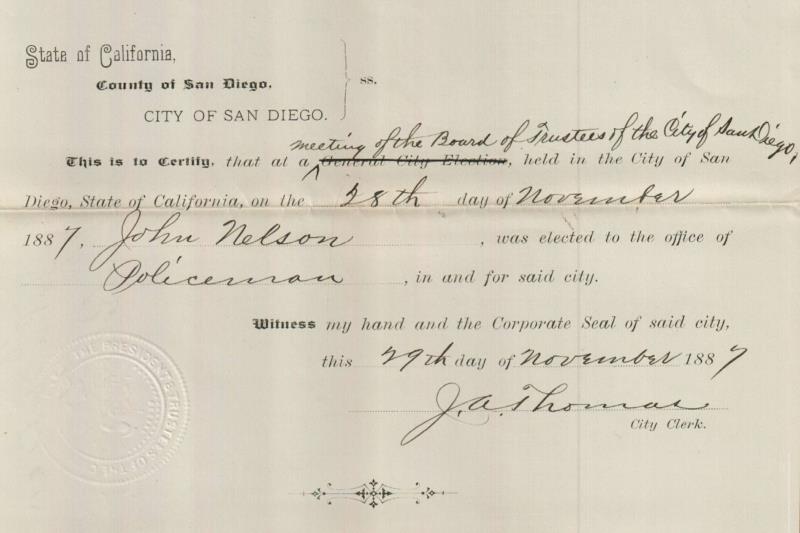 State of California,
County of San Diego,
CITY OF SAN DIEGO.
ss.
meeting of the Board of Trustees of the City of San Diego,
This is to Certify, that at a General City Election, held in the City of San
Diego, State of California, on the 28th day of November
1887, John Nelson, was elected to the office of
Policeman, in and for said city.
Witness my hand and the Corporate Seal of said city,
this 29th day of November 1887
J. A. Thomas
City Clerk.
THE PRESIDENT & TRUSTEES OF THE C